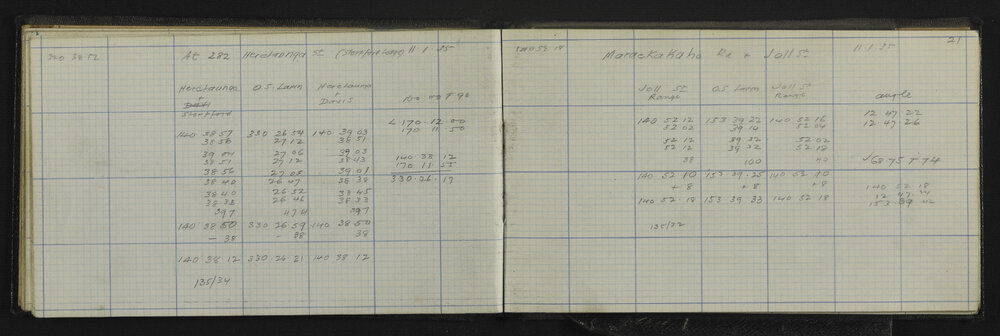 320 38-52 At 282 Heretaunga St (Stortford Lodge) 11.1.35
Heretaunga O.S. Lawn Heretaunga
+ +
Davis Davis 100.00 T 90
Stortford
∠ 170.12.00
170 11.50
140 38 57 330 26 54 140 39 03
38 56 27 12 38 51
39 04 27 06 39 03
38 51 27 12 38 43 140.38.12
38 56 27 05 39 01 170 11.55
38 40 26 47 38 38 330.26.17
38 40 26 52 38 45
38 33 26 46 38 33
397 474 397
140 38 50 330 26 59 140 38 50
- 38 - 38 38
140 38 12 330 26 21 140 38 12
135/34
140 52 18 Maraekakaho Rd + Joll St 11.1.35 21
Joll St O.S. Lawn Joll St
Range Range angle
140 52 12 153 39 22 140 52 16 12 47 22
52 02 39 14 52 04 12.47 26
52 12 39 32 52 02
52 12 39 32 52 18
38 100 40 √68.75 T 74
140 52 10 153 39.25 140 52 10
+ 8 + 8 +8 140 52 18
140 52.18 153 39 33 140 52 18 12 47.24
153 39 42
135/22